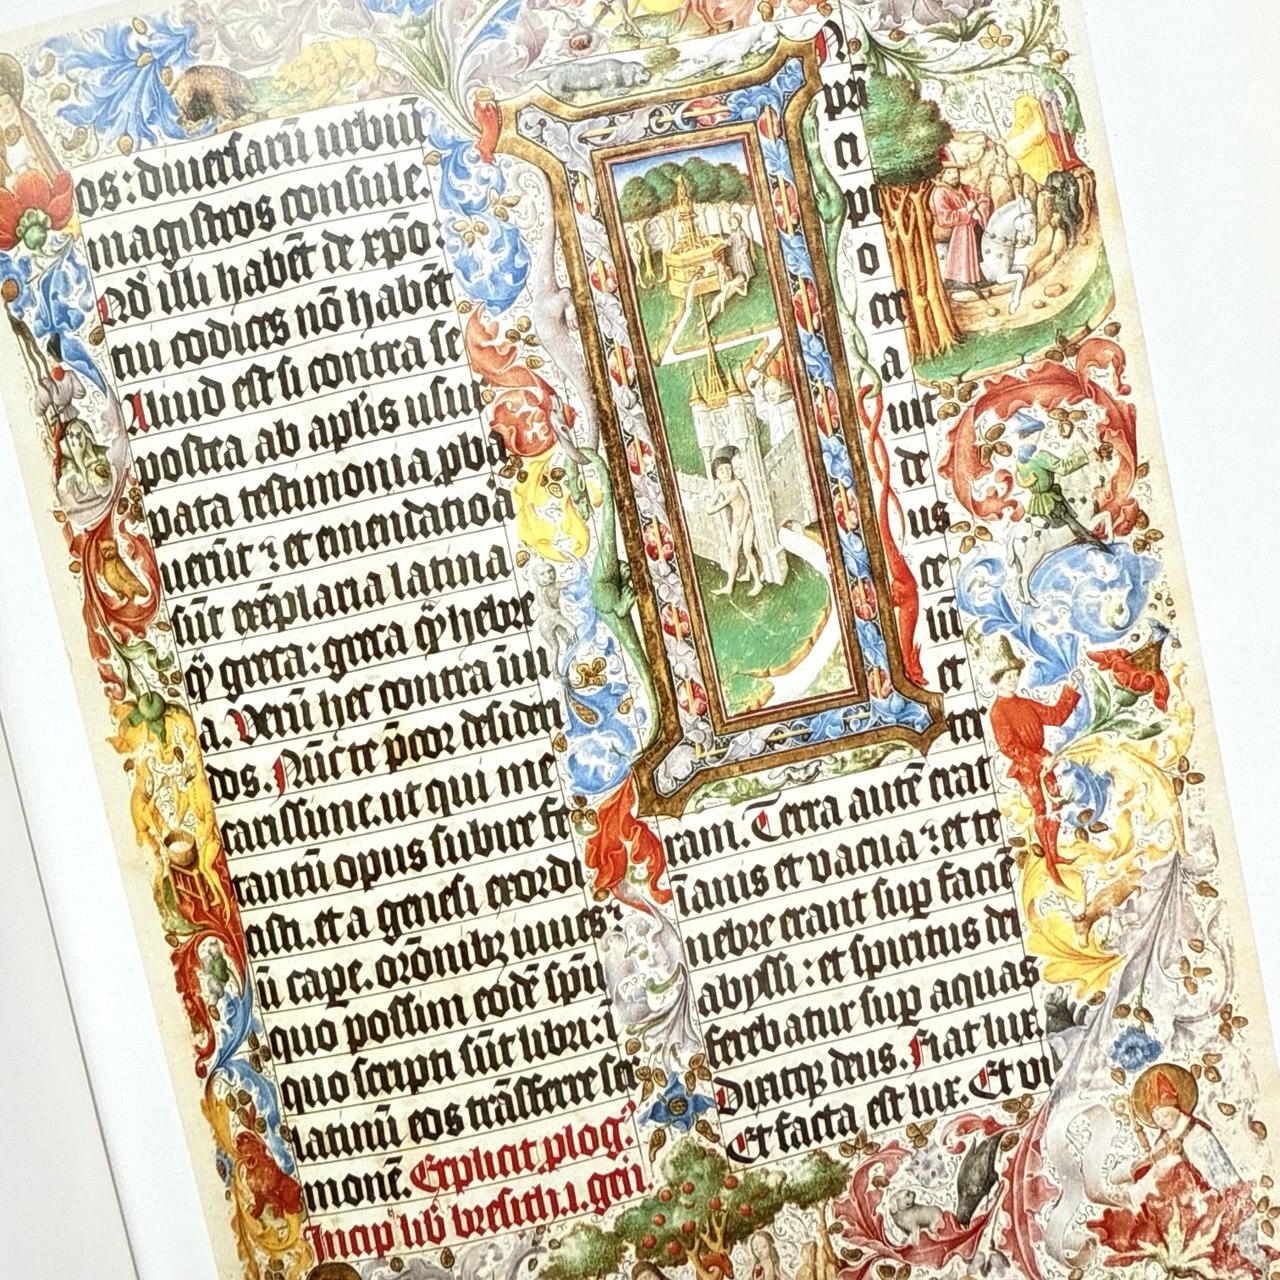 os: diuersarū urbiū
magistros consule.
Qd illi habēt de xp̄o.
tui codices nō habēt
Aliud est si contra se
postea ab aplīs usur
pata testimonia pba
uerūt: et emendatiōa
sūt exēplaria latina
q̄ greca: greca q̄ hebre
a. Verū hec contra īui
dos. Nūc te p̄cor desideri
carissime. ut qui me
tantū opus subire fe
cisti. et a genesi exordi
ū cape. orōnibꝫ iuues:
quo possim eodē spū
quo scripti sūt libri: ī
latinū eos trāsferre ser
monē. Explicit plog⁹
Incip lib bresith .i. geñ.
N
pri
ci
pi
o
cr
a
uit
de
us
ce
lū
et
ter
ram. Terra autē erat
īanis et vacua: et te
nebre erant sup faciē
abyssi: et spiritus dei
ferebatur sup aquas
Dixitqꝫ deus. Fiat lux
Et facta est lux. Et vi